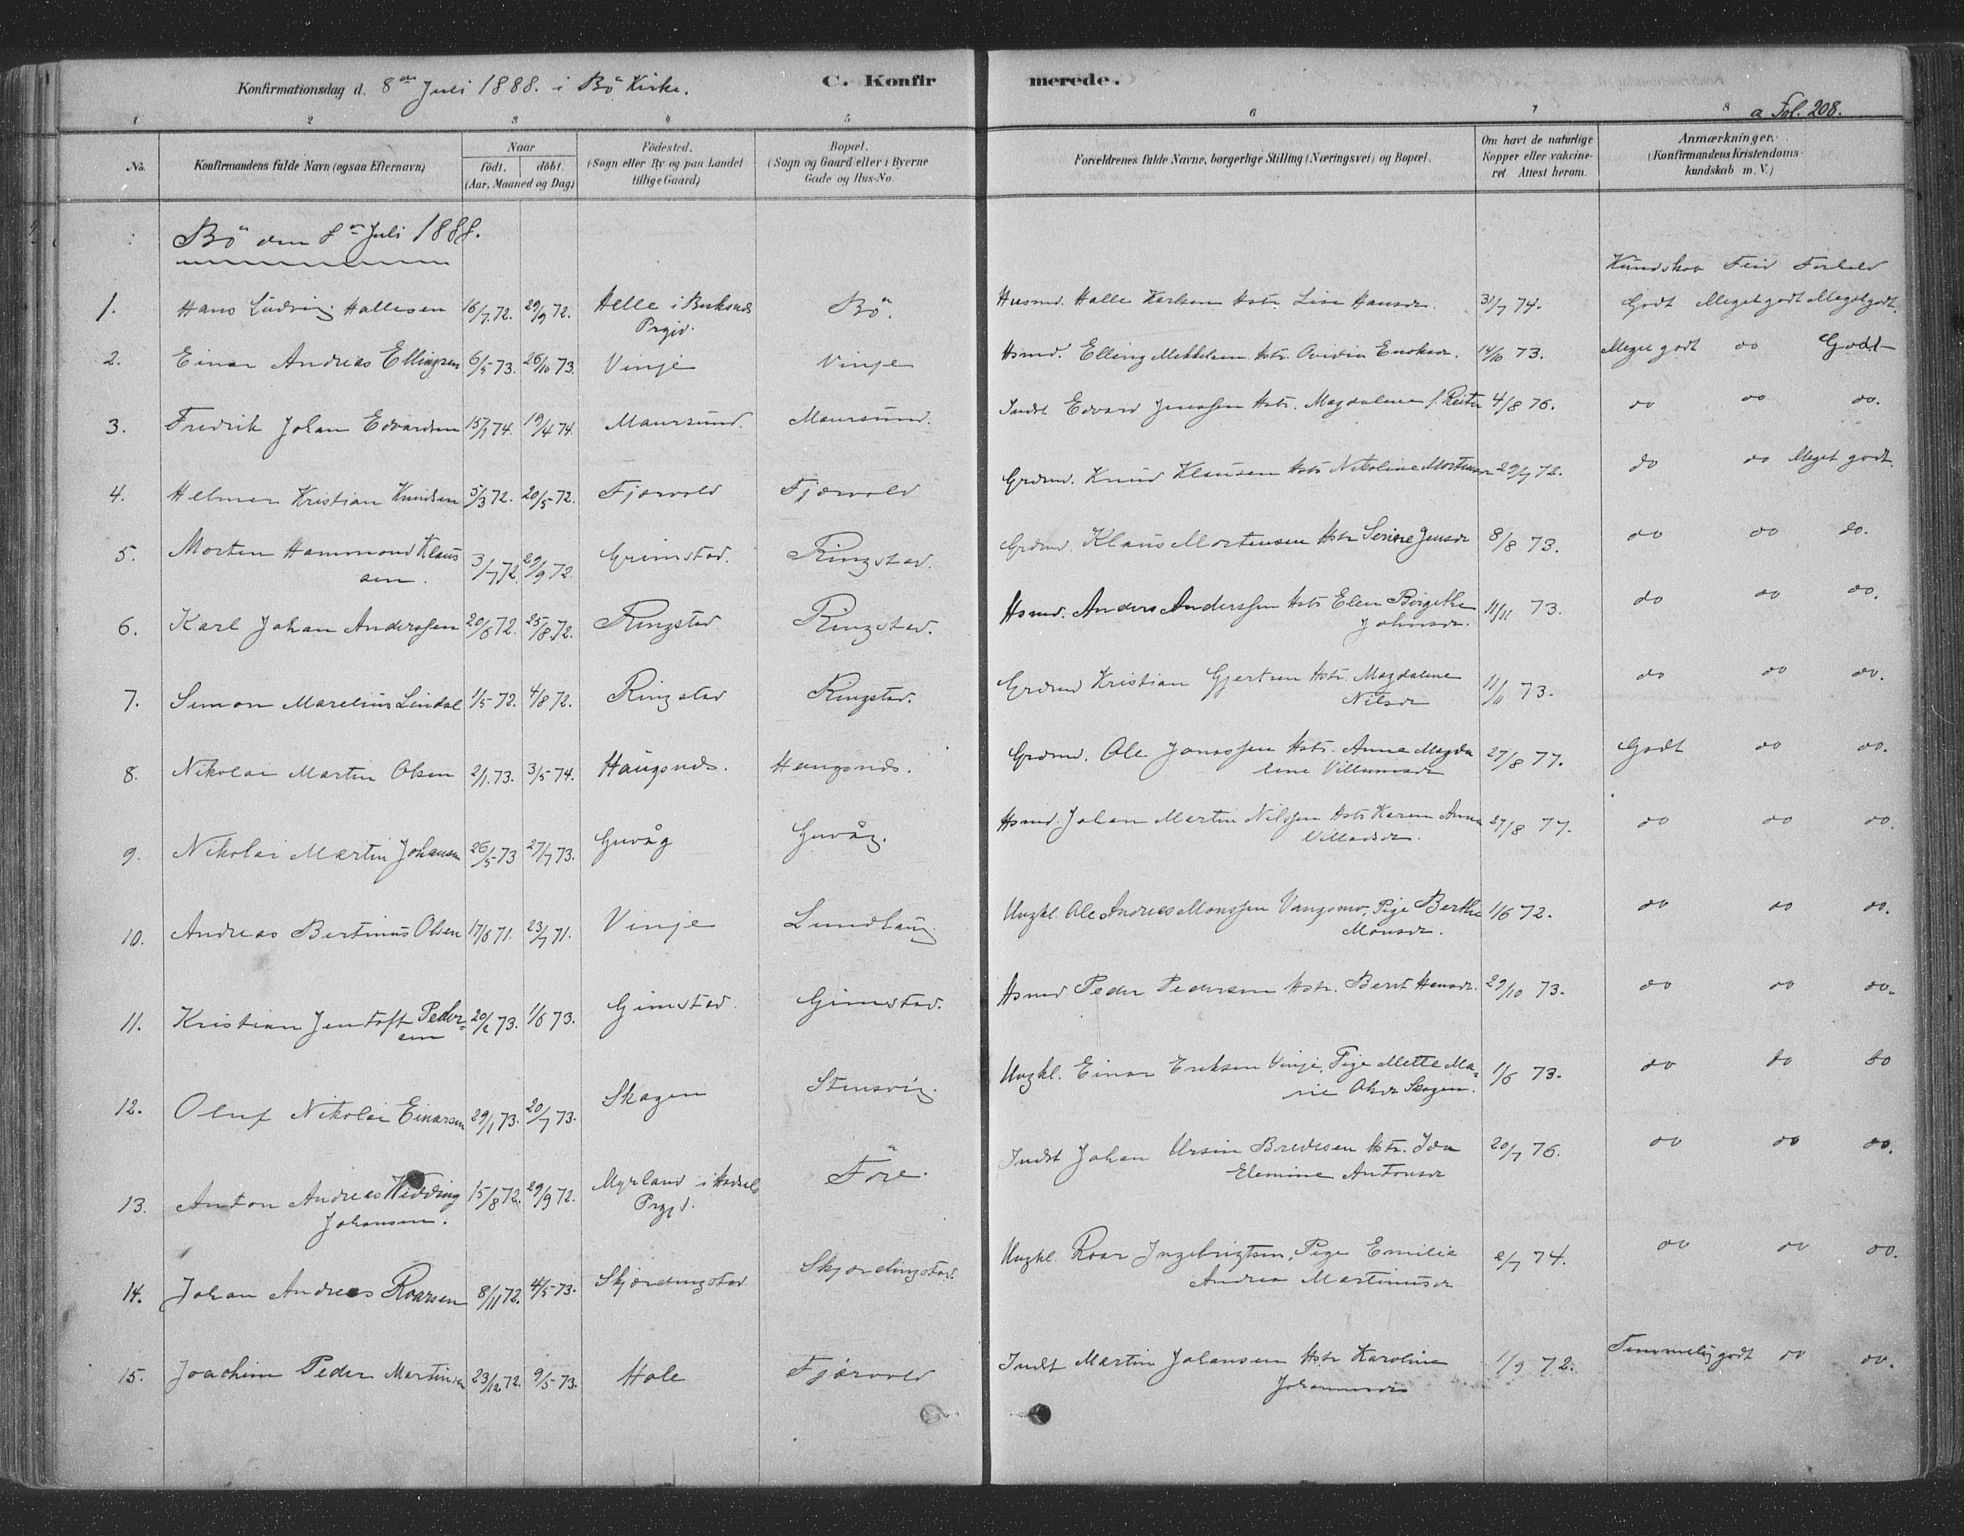 Konfirmationsdag d. 8de Juli 1888. i Bö Kirke.
C. Konfirmerede.
a Fol. 208.
1 2 3 4 5 6 7 8
No. Konfirmandens fulde Navn (ogsaa Efternavn) Naar födt. döbt. (Aar, Maaned og Dag) Födested. (Sogn eller By og paa Landet tillige Gaard) Bopæl. (Sogn og Gaard eller i Byerne Gade og Hus-No. Forældrenes fulde Navne, borgerlige Stilling (Næringsvei) og Bopæl. Om havt de naturlige Kopper eller vakcineret. Attest herom. Anmærkninger. (Konfirmandens Kristendomskundskab m. V.)
Bö den 8de Juli 1888.
Kundskab Flid Forhold
1. Hans Ludvig Hallesen 16/7 72. 29/9 72. Helle i Buksnes Prgjd. Bö. Husmd. Halle Karlsen Hstr. Lise Hansdr. 31/7 74. Godt Meget godt Meget godt.
2. Einar Andreas Ellingsen 6/5 73. 26/10 73. Vinje Vinje Hsmd. Elling Mikkelsen Hstr. Ovidia Enoksdr. 14/10 73. Meget godt do Godt
3. Fredrik Johan Edvardsen 15/1 74. 19/4 74. Maursund. Maursund. Indst Edvard Jenssen Hstr. Magdalena f. Reiter 4/8 76. do do do.
4. Helmer Kristian Knudsen 5/3 72. 20/5 72. Fjærvold Fjærvold Grdmd. Knud Klausen Hstr Nikoline Mortensdr 29/7 72. do do Meget godt.
5. Morten Hammond Klaus
sen. 3/7 72. 29/9 72. Grimstad. Ringstad. Grdmd. Klaus Mortensen Hstr Serine Jensdr 8/8 73. do do do.
6. Karl Johan Anderssen 20/6 72. 25/8 72. Ringstad Ringstad. Hsmd. Anders Anderssen Hstr Elen Birgithe
Johnsdr. 11/11 73. do do do.
7. Simon Marelius Lindal 1/5 72. 4/8 72. Ringstad Ringstad. Grdmd Kristian Gjertsen Hstr. Magdalene
Nilsdr 11/11 73. do do do.
8. Nikolai Martin Olsen 2/1 73. 3/5 74. Haugsnds. Haugsnds. Grdmd. Ole Jonassen Hstr. Anne Magda
lene Villumsdr 27/8 77. Godt do do.
9. Nikolai Martin Johansen 26/5 73 27/7 73. Guvåg Guvåg. Hsmd. Johan Martin Nilssen Hstr Karen Anna
Villadsdr. 27/8 77. do do do.
10. Andreas Bertinus Olsen 17/6 71. 23/7 71. Vinje Lundhaug Ungkl. Ole Andreas Monssen Vangsmo, Pige Berthe
Monsdr. 1/6 72. do do do.
11. Kristian Jentoft Peder-
sen 20/2 73. 1/6 73. Gimstad. Gimstad. Hsmd. Peder Pedersen Hstr. Berit Hansdr. 29/10 73. do do do.
12. Oluf Nikolai Einarsen 29/1 73. 20/7 73. Skagen Stensvig. Ungkl. Einar Eriksen Vinje, Pige Mette Ma-
rie Olsdr Skagen. 1/6 73. do do do
13. Anton Andreas Wedding
Johansen. 15/8 72. 29/9 72. Myrland i Hadsels Prgjd. Före. Indst Johan Ursin Bredesen Hstr. Ida
Elemine Antonsdr 20/7 76. do do do.
14. Johan Andreas Roarsen 8/11 72. 4/5 73. Skjærdingstad Skjærdingstad. Ungkl. Roar Ingebrigtsen, Pige Emilie
Andrea Martinusdr 2/7 74. do do do.
15. Joachim Peder Martinsen 23/12 72. 9/5 73. Hole Fjærvold Indst Martin Johansen Hstr Karoline
Johannesdr 1/9 72. Temmelig godt do do.